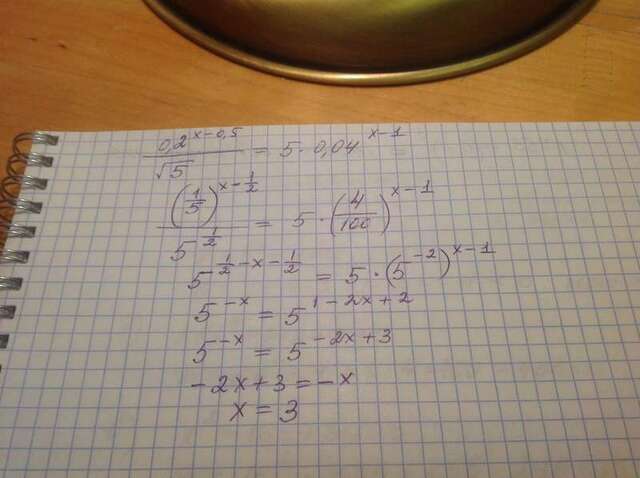 0,2^(x-0,5) / √5 = 5 · 0,04^(x-1)
(1/5)^(x-1/2) / 5^(1/2) = 5 · (4/100)^(x-1)
5^(1/2-x-1/2) = 5 · (5^(-2))^(x-1)
5^(-x) = 5^(1-2x+2)
5^(-x) = 5^(-2x+3)
-2x+3=-x
x=3